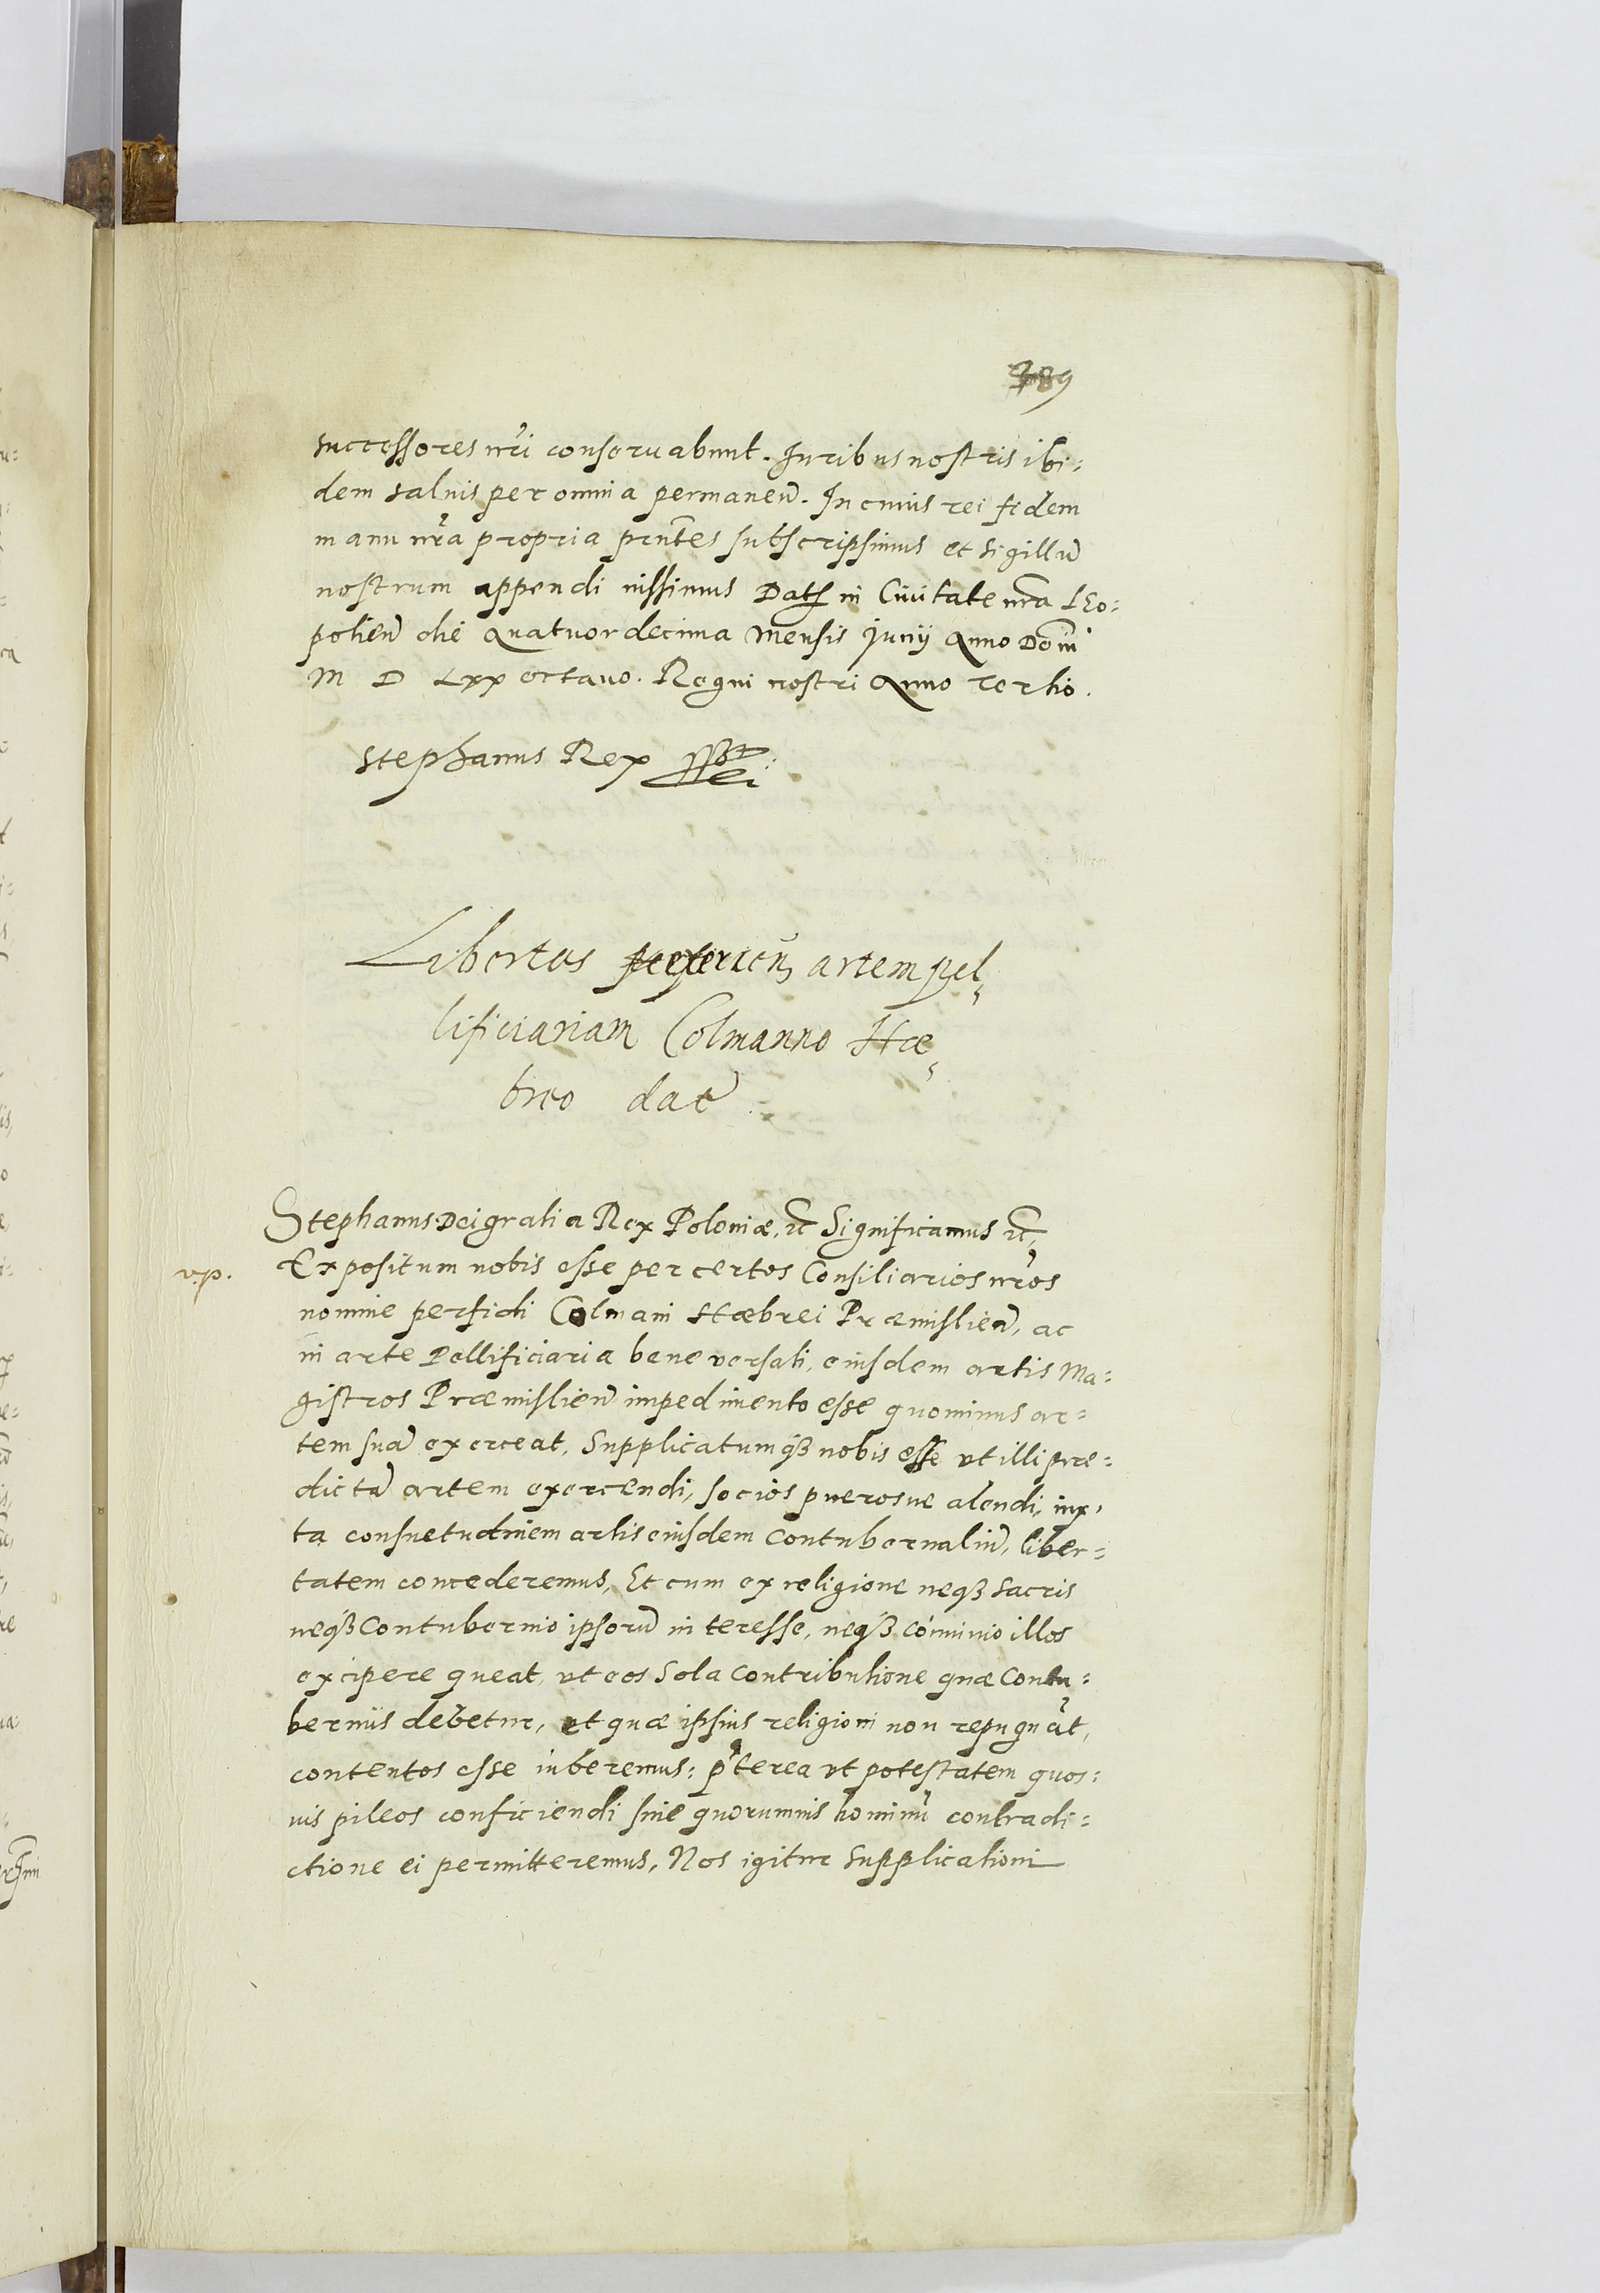 389
successores nri conseruabunt. Juribus nostris ibi:
dem saluis per omnia permanen. In cuius rei fidem
manu nra propria pntes subscripsimus et sigillu
nostrum appendi iussimus Dat in Ciuitate nra Leo:
polien die Quatuordecima Mensis Junij Anno Dom
M D LXX octauo. Regni nostri Anno tertio.
Stephanus Rex
Libertas exercen artem pel,
lificiariam Colmanno Hæ,
breo dat
Stephanus Dei gratia Rex Poloniæ, etc Significamus etc,
v.p. Expositum nobis esse per certos Consiliarios nros
nomine perfidi Colmani Hæbrei Præmislien, ac
in arte Pellificiaria bene versati, eiusdem artis Ma:
gistros Præmislien impedimento esse quominus ar:
tem sua exerceat, Supplicatumq3 nobis esse vt illi præ:
dicta artem exercendi, socios puerosue alendi, iux,
ta consuetudinem artis eiusdem Contubernaliu, liber:
tatem concederemus, Et cum ex religione neq3 sacris
neq3 Contubernio ipsoru interesse, neq3 cóuiuio illos
excipere queat, vt eos sola contributione quæ Contu:
bernijs debetur, et quæ ipsius religioni non repugnat,
contentos esse iuberemus: pterea vt potestatem quos:
uis pileos conficiendi sine quorumuis hominu contradi:
ctione ei permitteremus, Nos igitur supplicationi